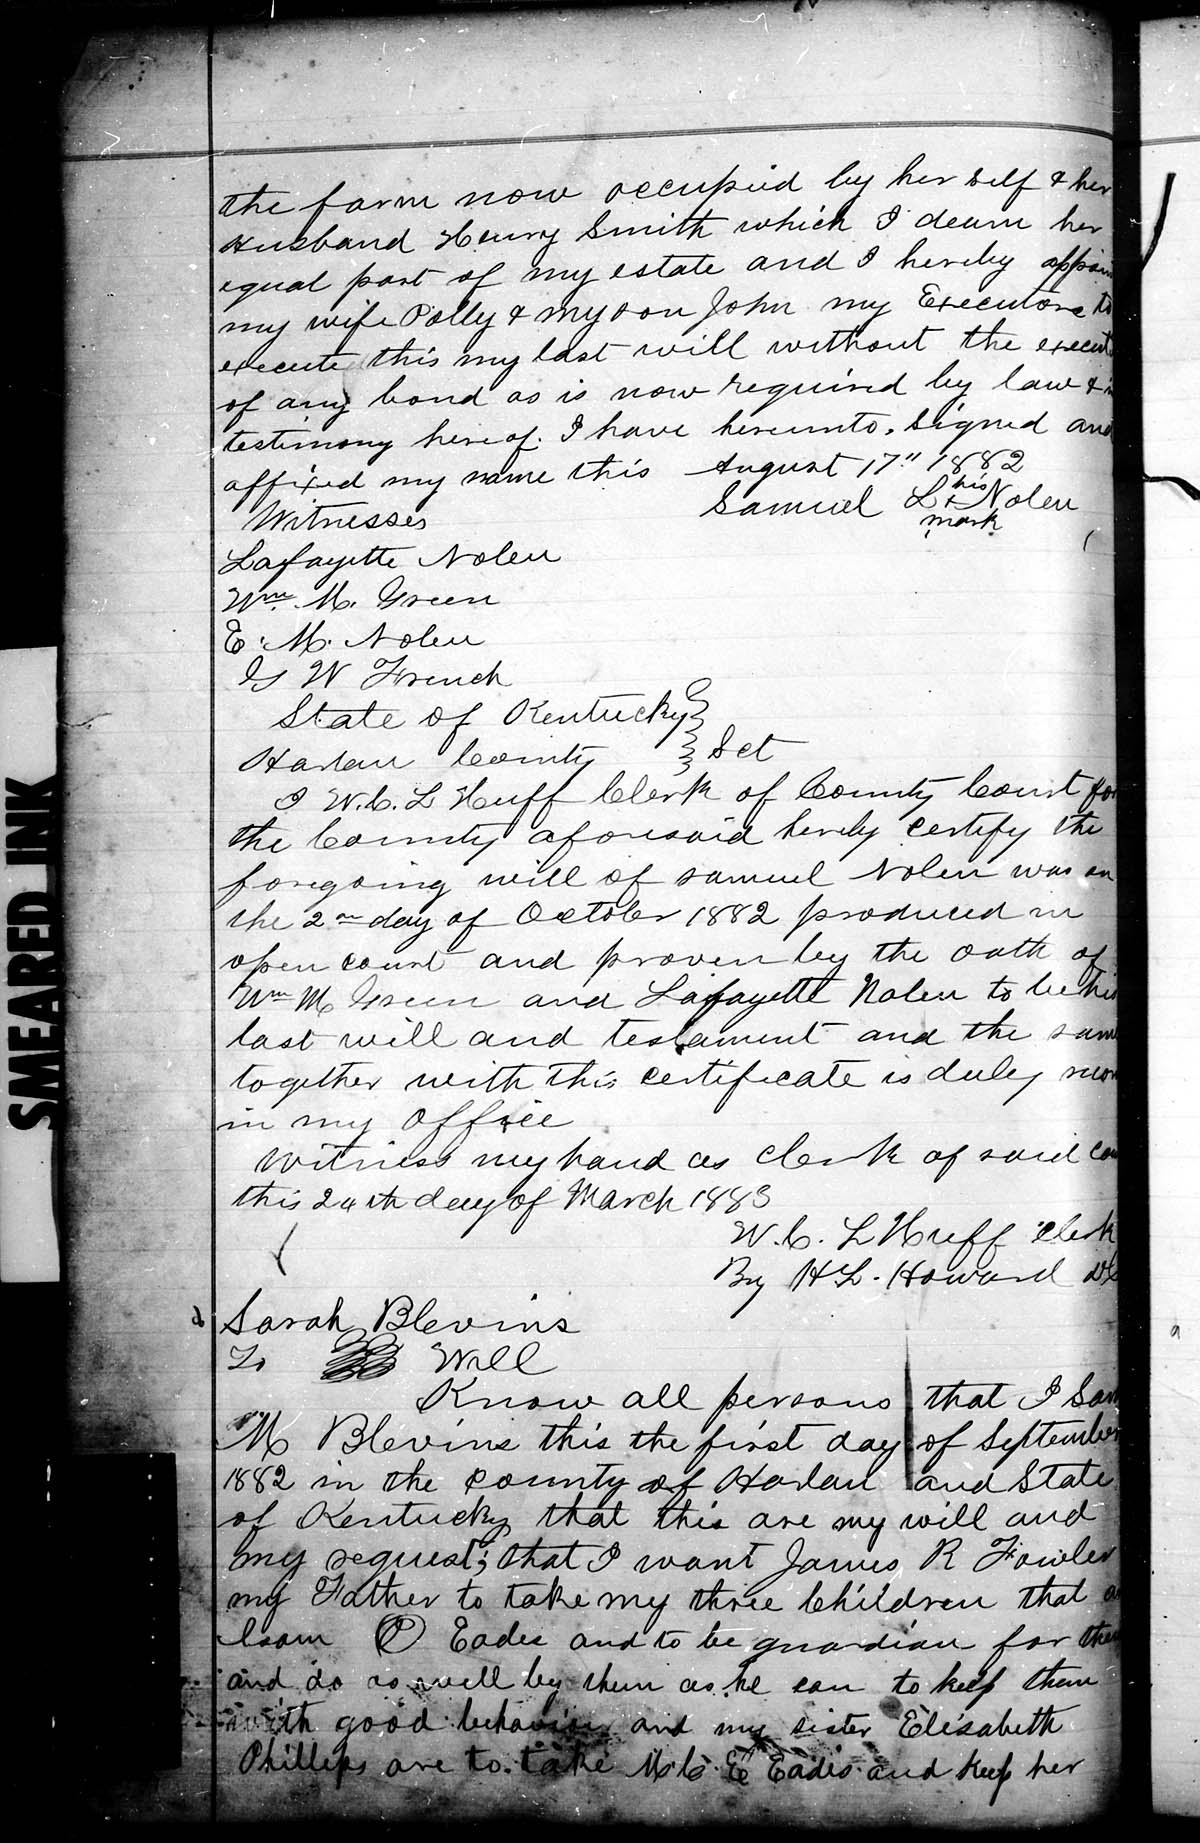 the farm now occupied by her self & her
Husband Henry Smith which I deam her
equal part of my estate and I hereby appoin
my wife Polly & my son John my Executors to
execute this my last will without the execut
of any bond as is now required by law & in
testimony here of. I have hereunto. signed and
affixed my name this August 17" 1882
Witnesses Samuel L his x Nolen
mark
Lafayette Nolen
Wm. M. Green
E. M. Nolen
G W French
State of Kentucky
Harlan County } Sct
I W. C. L Huff Clerk of County Court for
the County aforesaid hereby certify the
foregoing will of samuel Nolen was on
the 2nd day of October 1882 produced in
open court and proven by the oath of
Wm M Green and Lafayette Nolen to be his
last will and testament and the same
together with this certificate is duly recor
in my office
Witness my hand as clerk of said cou
this 24th day of March 1883
W. C. L Huff clerk
By H L. Howard DC
Sarah Blevins
To Will
Know all persons that I Sar
M Blevins this the first day of September
1882 in the county of Harlan and State
of Kentucky that this are my will and
my request; that I want James R Fowler
my Father to take my three Children that a
Isom O Eades and to be guardian for them
and do as well by them as he can to keep them
with good behavior and my sister Elisabeth
Phillips are to take M. C. E Eades and keep her
SMEARED INK